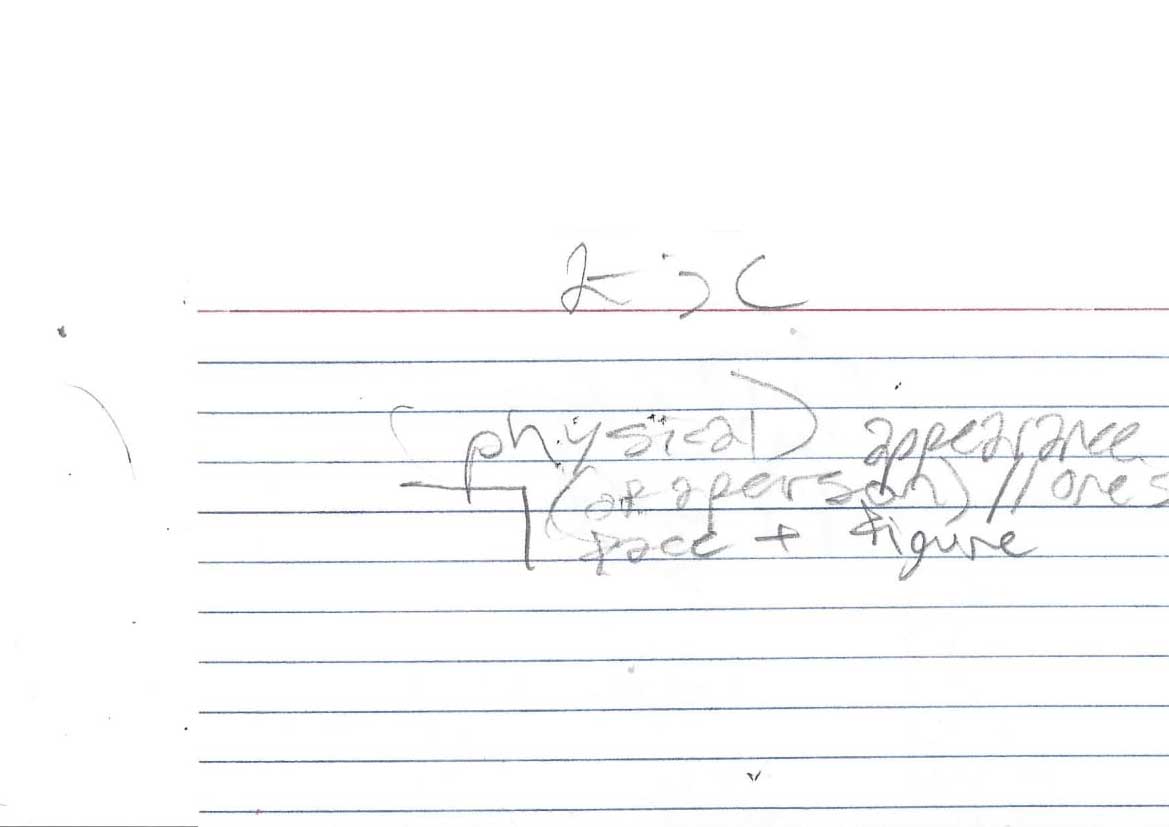 ようし
(physical) appearance
(of a person) // one's
face + figure